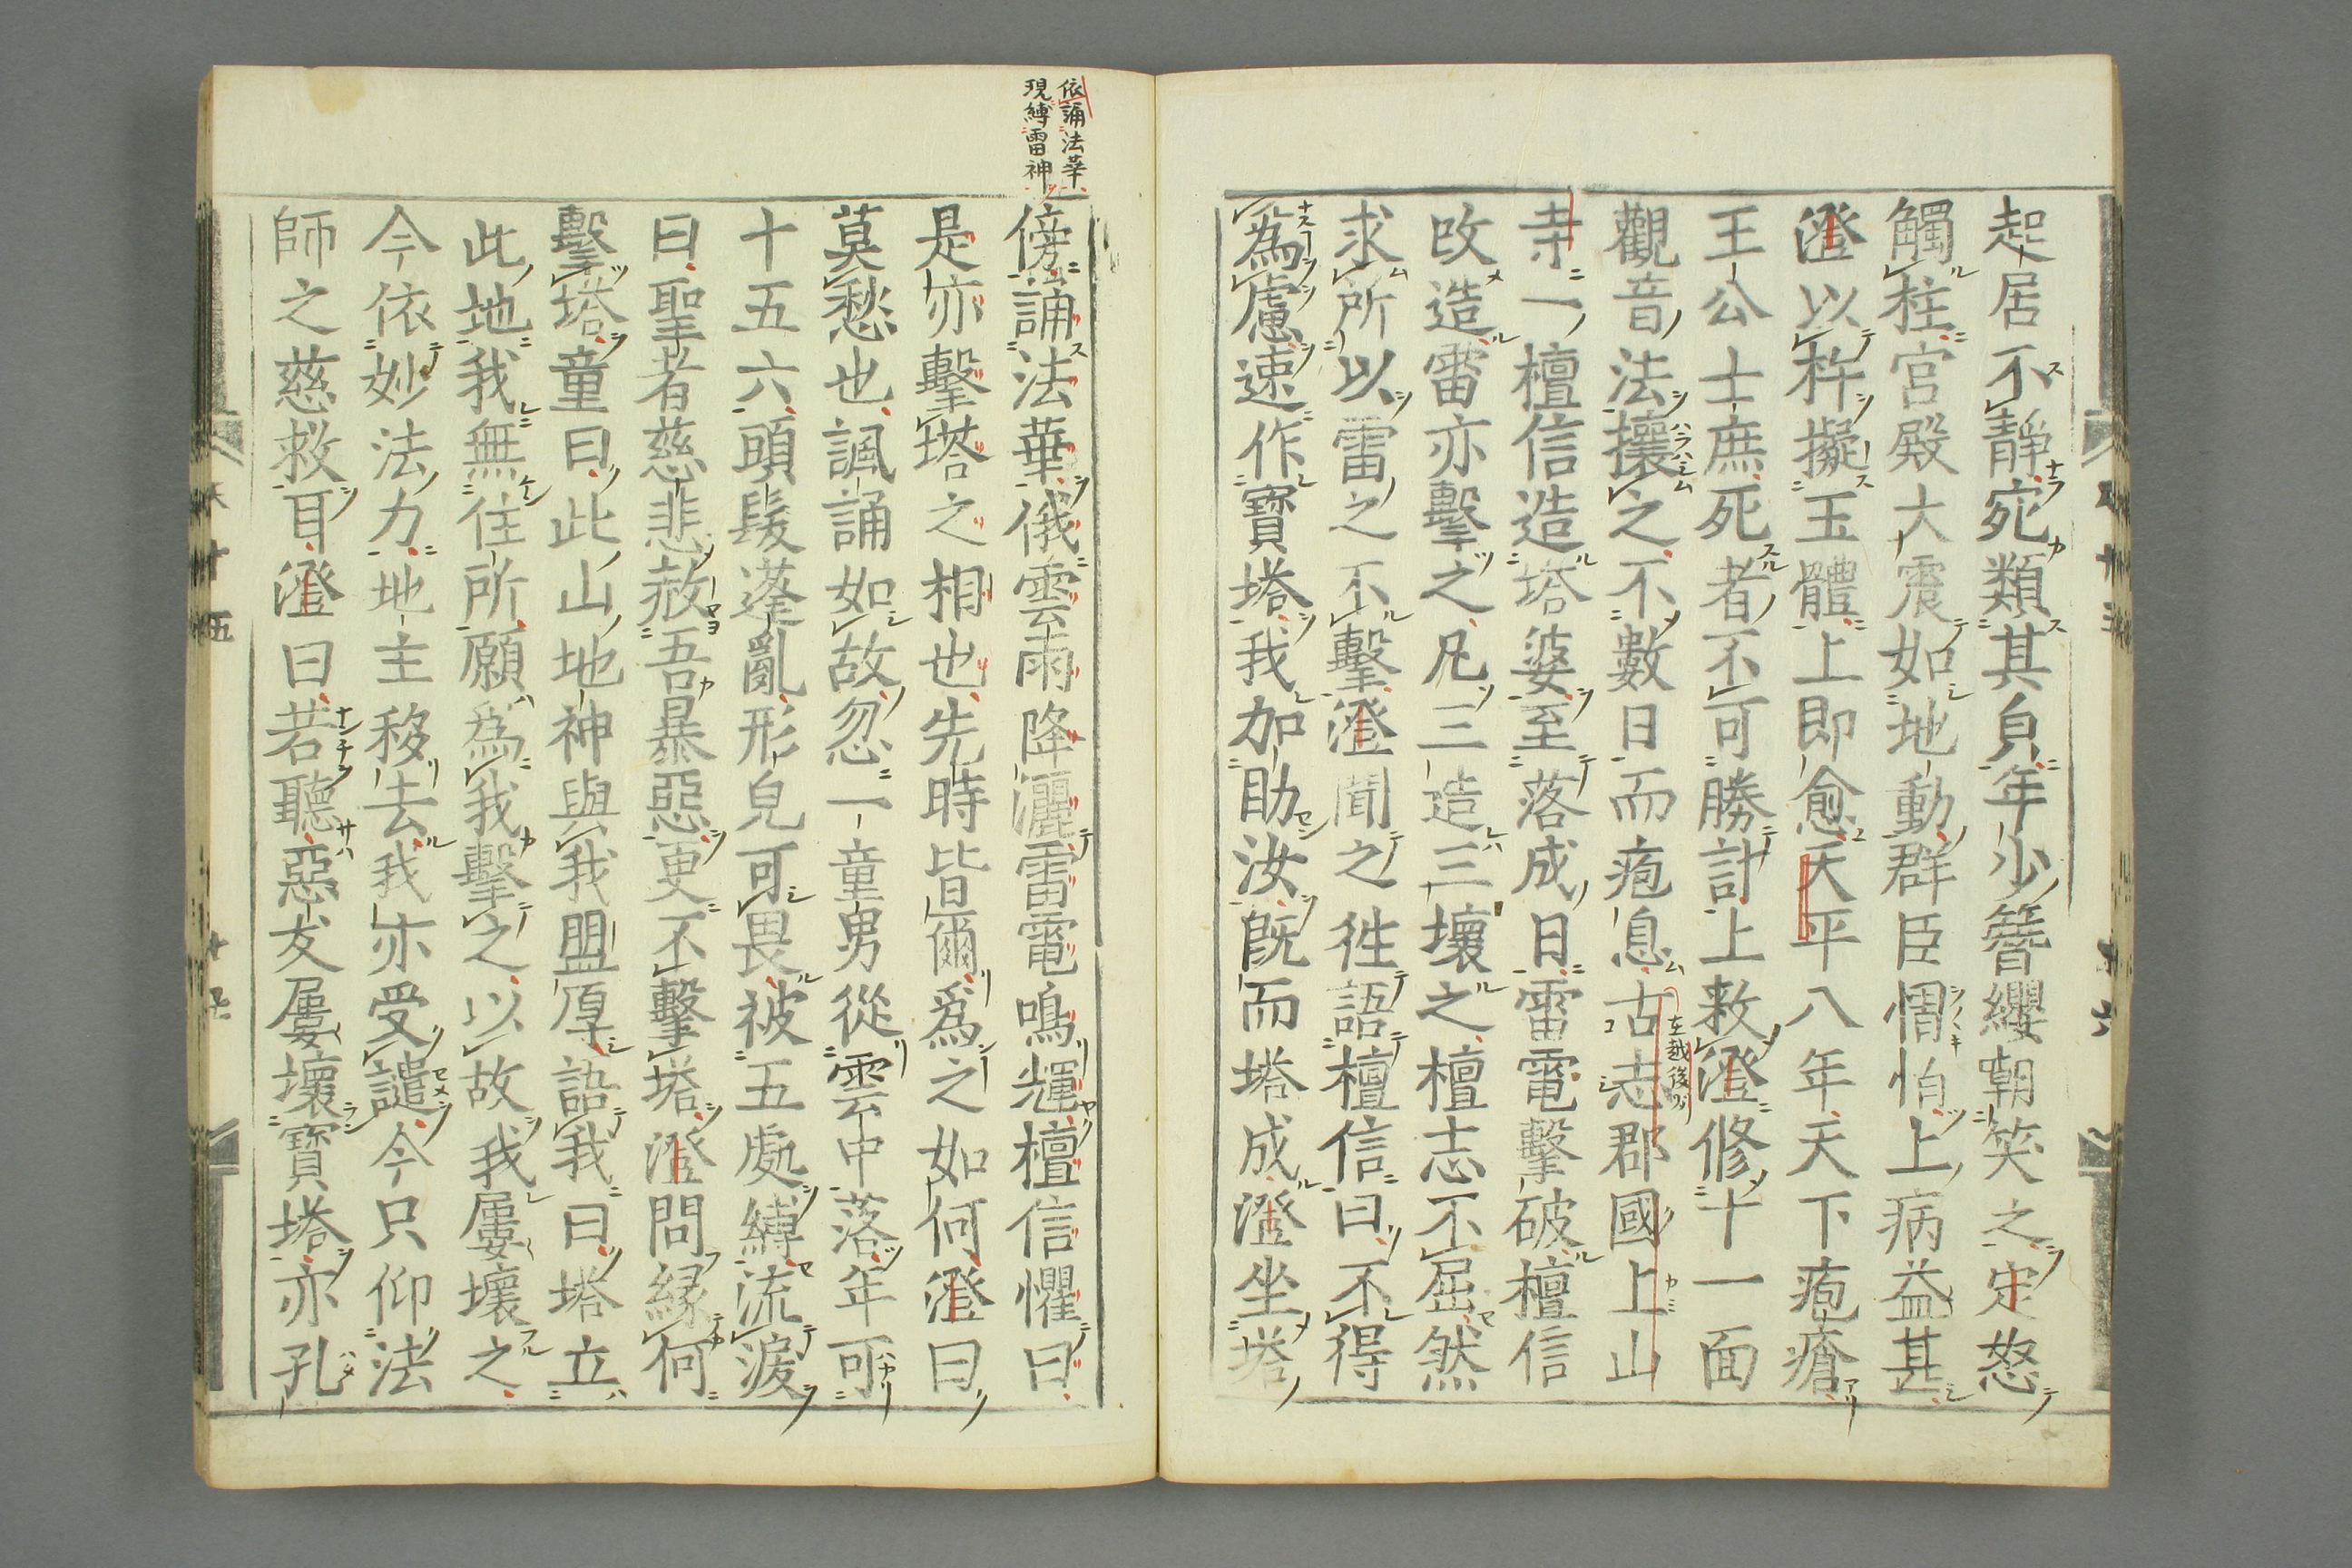 起居不靜宛類其皃年少簪纓嘲笑之定怒
觸柱宮殿大震如地動群臣惆怕上病益甚
澄以杵擬玉體上即愈天平八年天下疱瘡
王公士庶死者不可勝計上敕澄修十一面
觀音法攘之不數日而疱息古志郡國上山
在越後州
寺一檀信造塔婆至落成日雷電擊破檀信
改造雷亦擊之凡三造三壞之檀志不屈然
求所以雷之不擊澄聞之徃語檀信曰不得
為慮速作寶塔我加助汝既而塔成澄坐塔
依誦法華
現縛雷神
傍誦法華俄雲雨降灑雷電鳴輝檀信懼曰
是亦擊塔之相也先時皆爾為之如何澄曰
莫愁也諷誦如故忽一童男從雲中落年可
十五六頭髮蓬亂形皃可畏被五處縛流淚
曰聖者慈悲赦吾暴惡更不擊塔澄問緣何
擊塔童曰此山地神與我盟厚語我曰塔立
此地我無住所願為我擊之以故我屢壞之
今依妙法力地主移去我亦受譴今只仰法
師之慈救耳澄曰若聽惡友屢壞寶塔亦孔